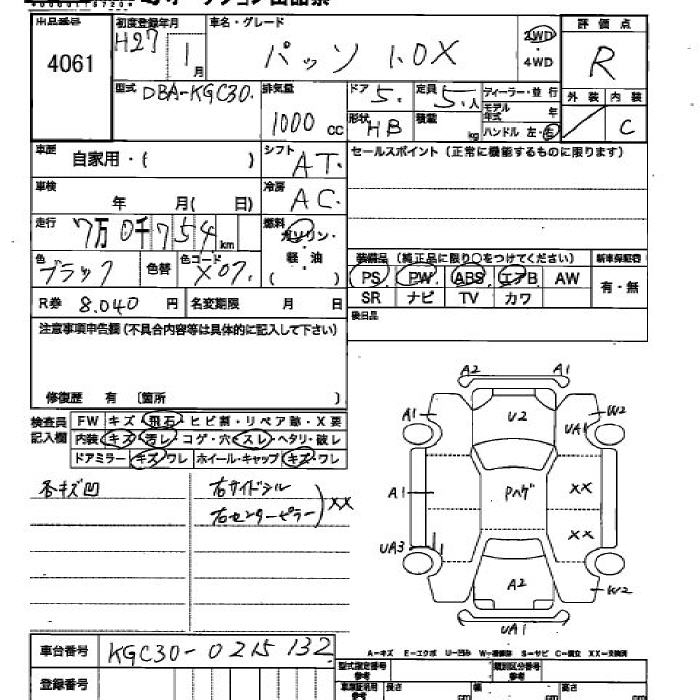 出品番号 4061
初度登録年月 H27 1月
車名・グレード パッソ 1.0X
2WD・4WD
評価点 R
外装 内装 C
型式 DBA-KGC30.
排気量 1000 cc
ドア 5. 定員 5.人
形状 HB 積載 kg
ディーラー・並行
モデル年式 年
ハンドル 左・右
車歴 自家用・( )
シフト AT.
セールスポイント(正常に機能するものに限ります)
車検 年 月( 日)
冷房 AC.
走行 7万0千754km
燃料 ガソリン・軽・油 ( )
色 ブラック 色替 色コード X07.
装備品(純正品に限り○をつけてください) 新車保証書
PS PW ABS エアB AW 有・無
SR ナビ TV カワ
R券 8.040円 名変期限 月 日
後日品
注意事項申告欄(不具合内容等は具体的に記入して下さい)
修復歴 有 〔箇所 〕
検査員記入欄
FW キズ・飛石・ヒビ割・リペア跡・X要
内装・キズ・汚レ・コゲ・穴・スレ・ヘタリ・破レ
ドアミラー・キズ・ワレ ホイール・キャップ・キズ・ワレ
各キズ凹
右サイドシル
右センターピラー
XX
A2 A1
A1 U2 W2
UA1
A1 Pハゲ XX
XX
UA3
A2 W2
UA1
車台番号 KGC30-0215132
登録番号
A-キズ E-エクボ U-凹み W-補修跡 S-サビ C-腐食 XX-交換済
型式指定番号 類別区分番号
車庫証明用参考 長さ cm 幅 cm 高さ cm